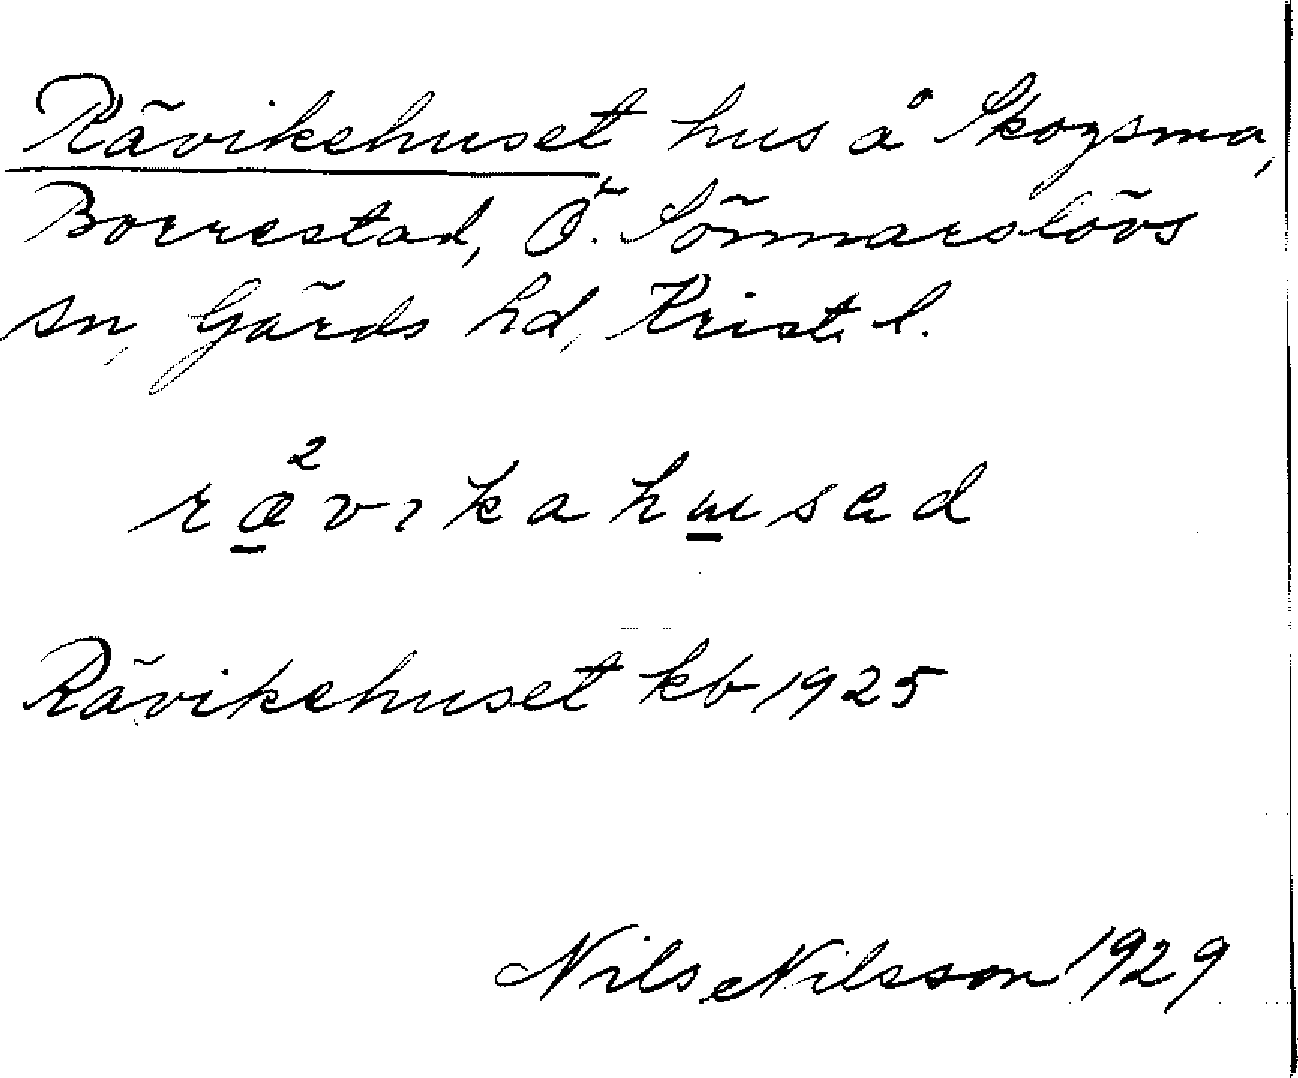 Rävikehuset hus å Skogsma,
Borrestad, Ö. Sönnarslövs
sn, Gärds hd, Krist. l.
ræ²vıkahusad
Rävikehuset kb 1925
Nils Nilsson 1929